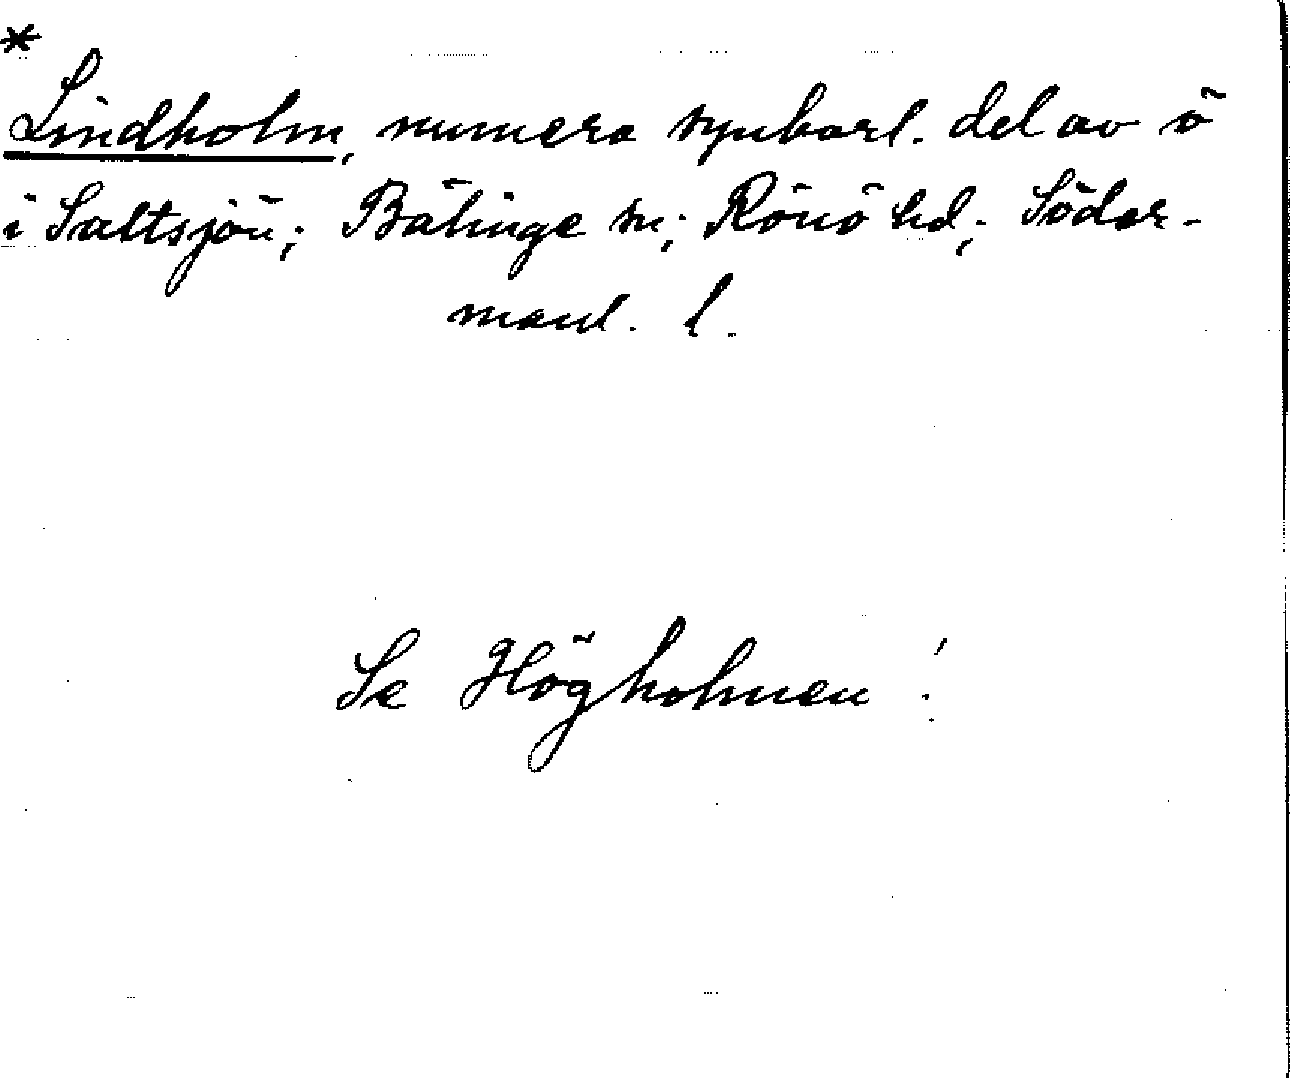 *
Lindholm, numera synbarl. del av ö
i Saltsjön; Bälinge sn; Rönö hd; Söder-
manl. l.
Se Högholmen!